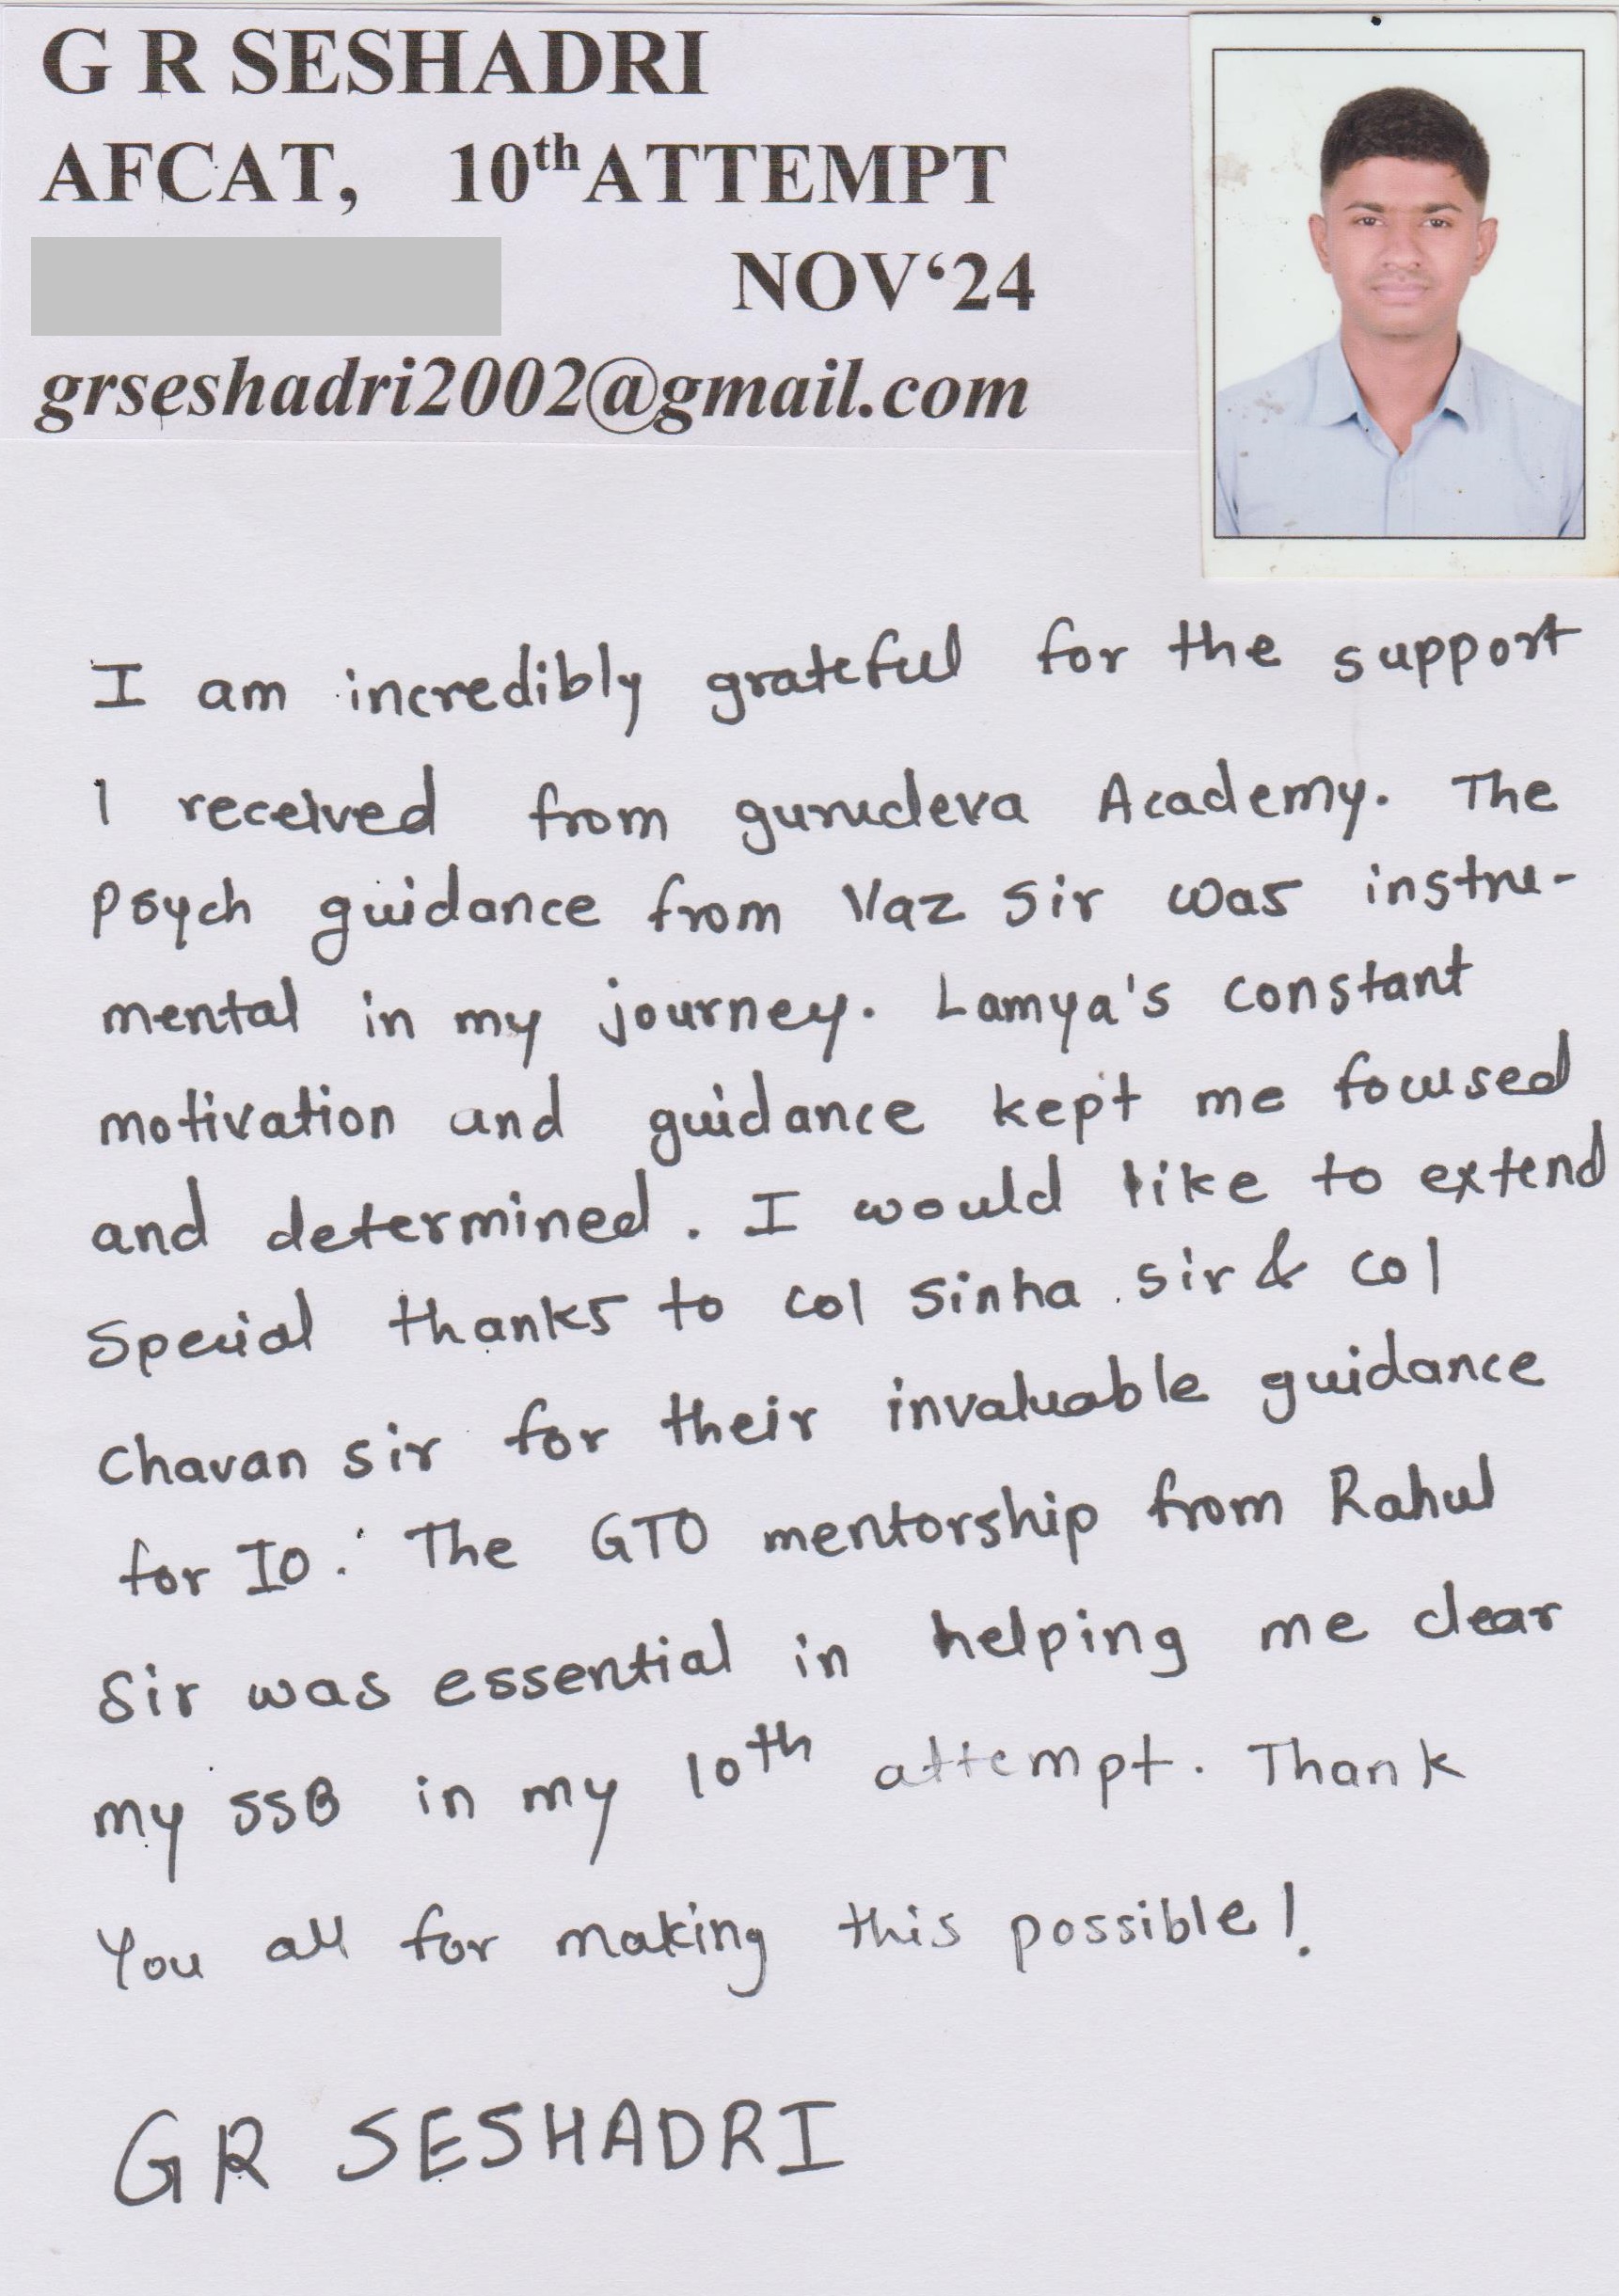 G R SESHADRI
AFCAT, 10th ATTEMPT
NOV‘24
grseshadri2002@gmail.com
I am incredibly grateful for the support
I received from gurudeva Academy. The
Psych guidance from Vaz Sir was instru-
mental in my journey. Lamya's constant
motivation and guidance kept me focused
and determined. I would like to extend
Special thanks to Col Sinha sir & Col
Chavan sir for their invaluable guidance
for IO. The GTO mentorship from Rahul
Sir was essential in helping me clear
my SSB in my 10th attempt. Thank
You all for making this possible!
GR SESHADRI